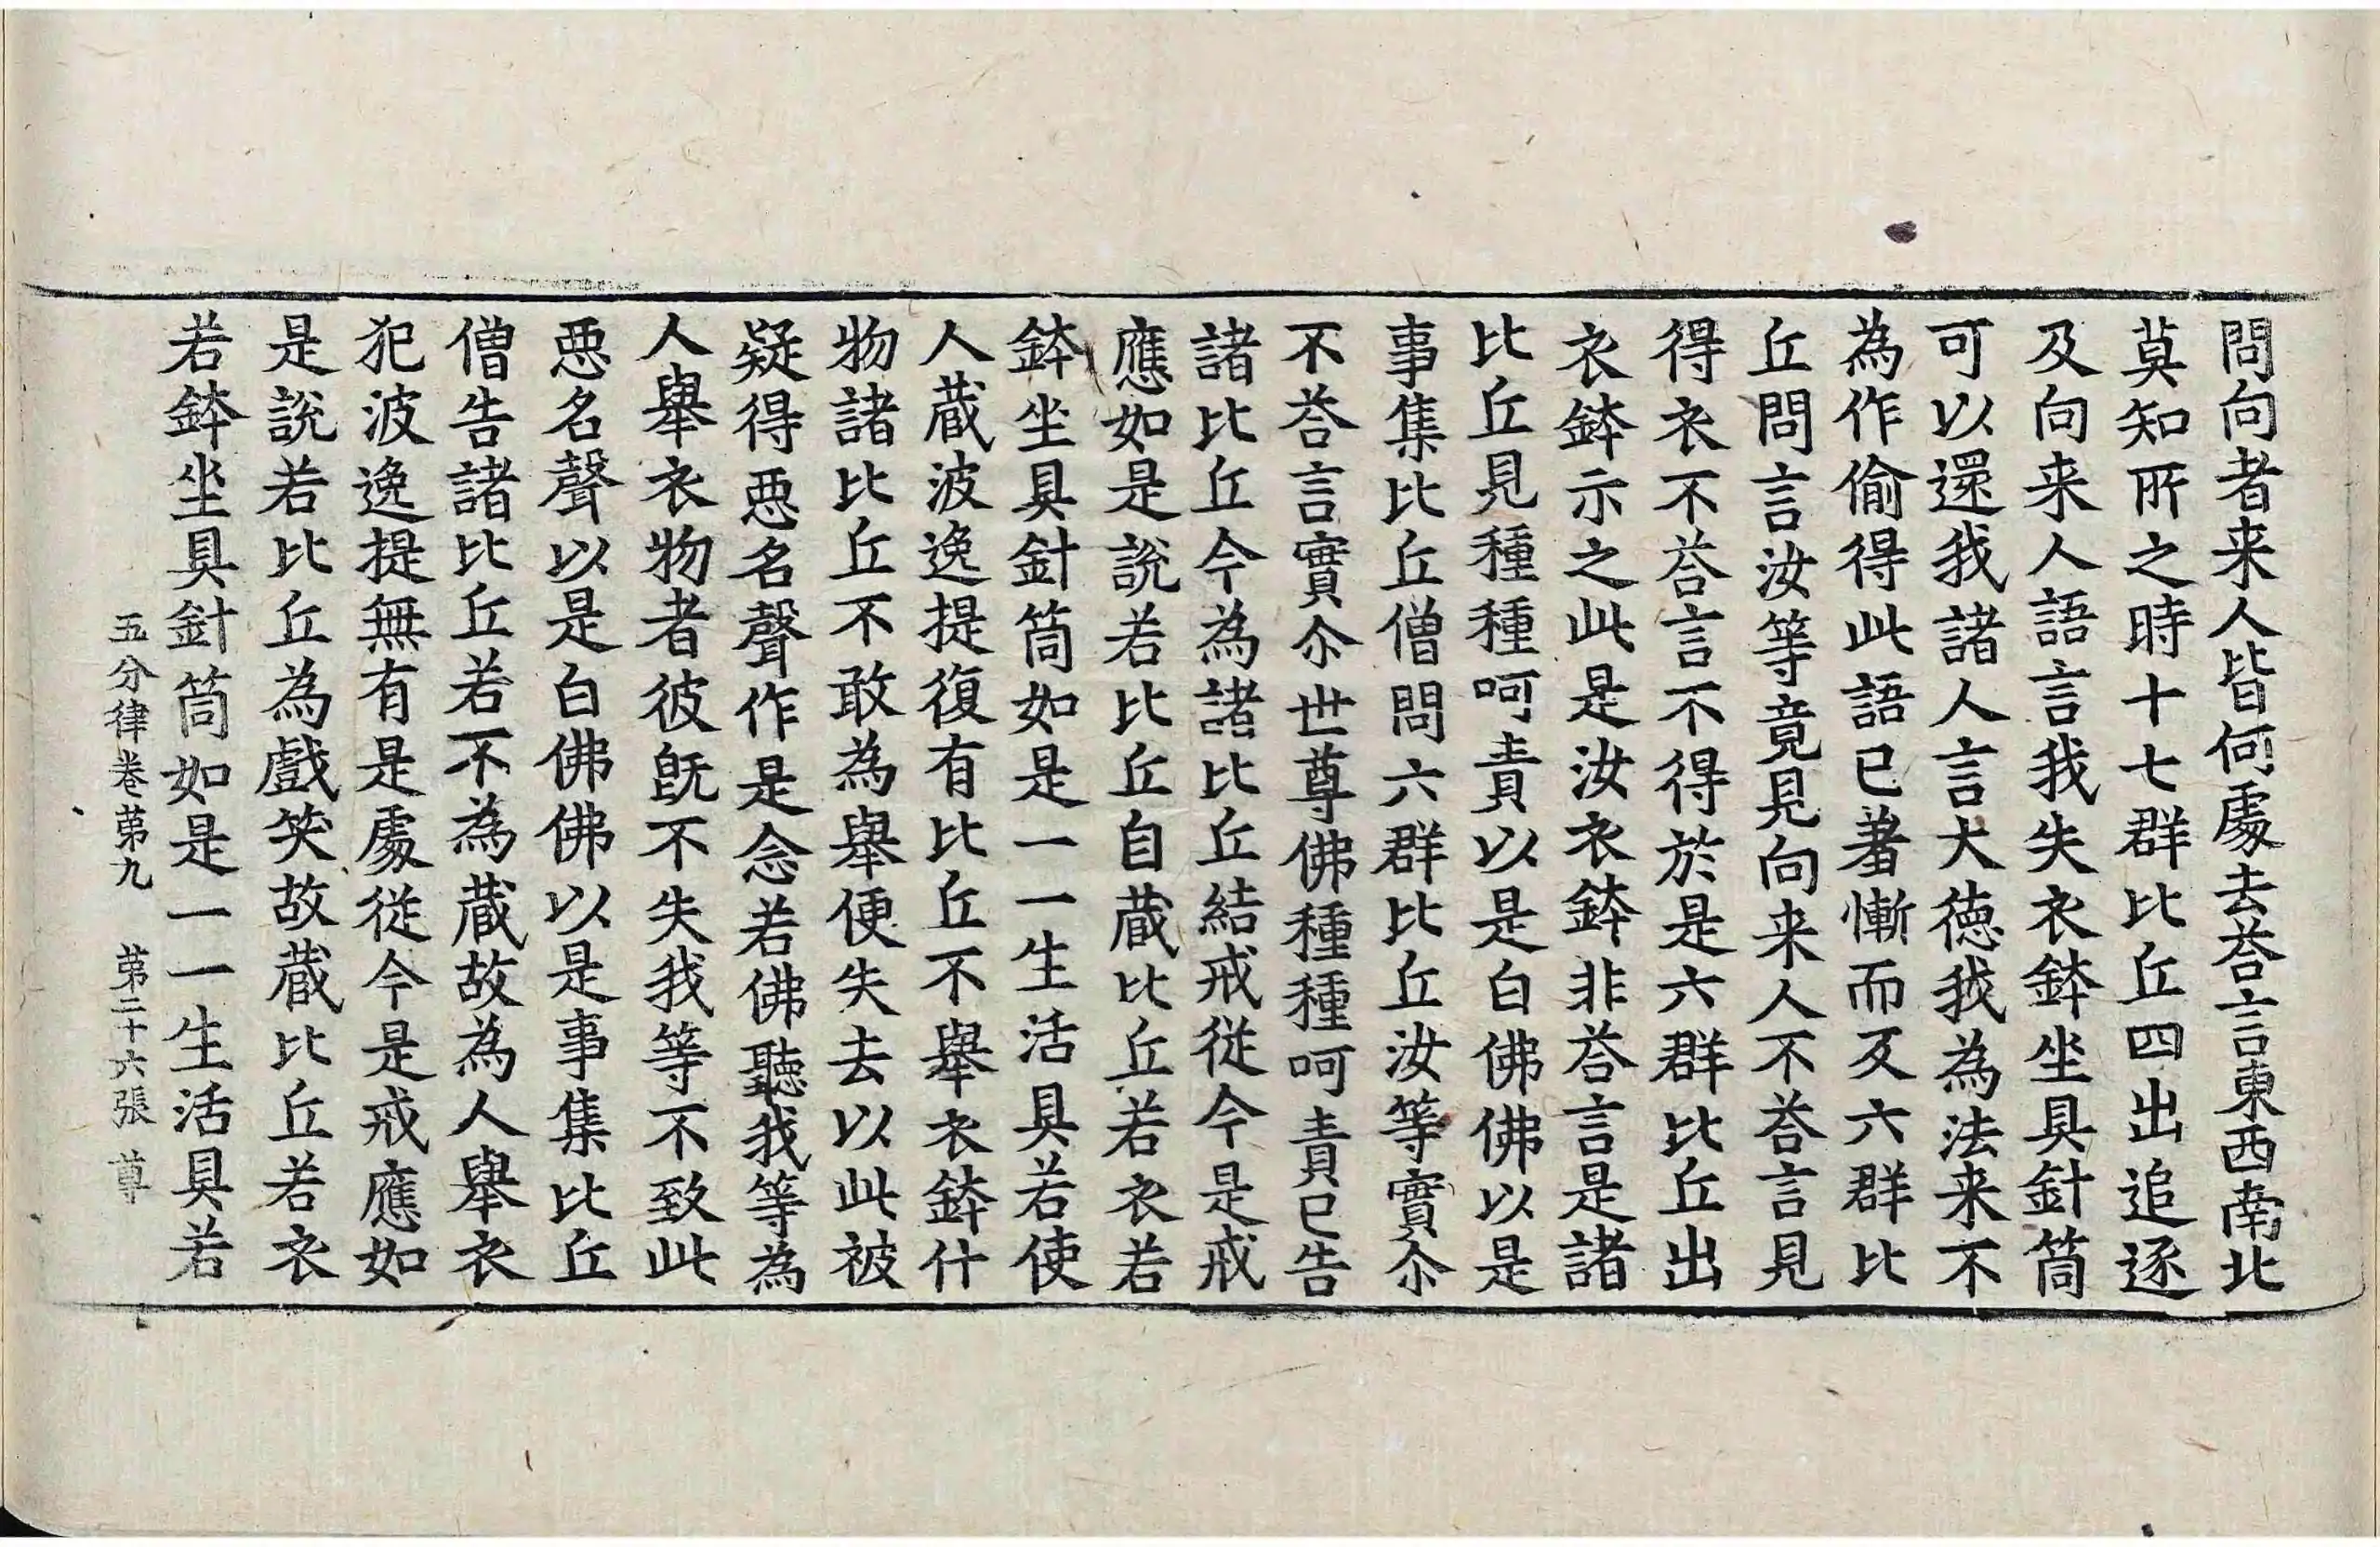 問向者来人皆何處去荅言東西南北
莫知所之時十七群比丘四出追逐
及向来人語言我失衣鉢坐具針筒
可以還我諸人言大德我為法来不
為作偷得此語已羞慚而反六群比
丘問言汝等竟見向来人不荅言見
得衣不荅言不得於是六群比丘出
衣鉢示之此是汝衣鉢非荅言是諸
比丘見種種呵責以是白佛佛以是
事集比丘僧問六群比丘汝等實尒
不荅言實尒世尊佛種種呵責已告
諸比丘今為諸比丘結戒從今是戒
應如是說若比丘自蔵比丘若衣若
鉢坐具針筒如是一一生活具若使
人蔵波逸提復有比丘不舉衣鉢什
物諸比丘不敢為舉便失去以此被
疑得惡名聲作是念若佛聽我等為
人舉衣物者彼旣不失我等不致此
惡名聲以是白佛佛以是事集比丘
僧告諸比丘若不為蔵故為人舉衣
犯波逸提無有是處從今是戒應如
是說若比丘為戲笑故蔵比丘若衣
若鉢坐具針筒如是一一生活具若
五分律卷苐九 苐二十六張 尊